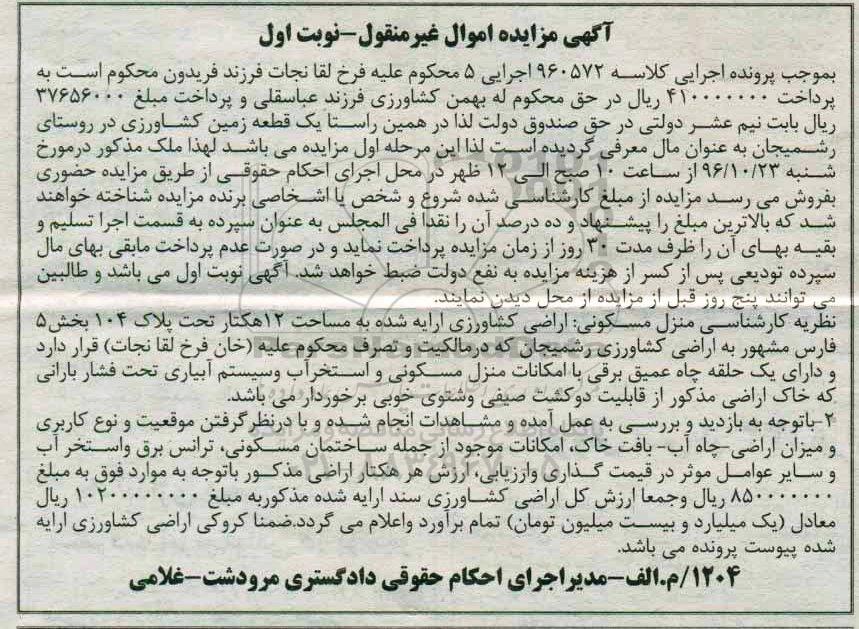 آگهی مزایده اموال غیرمنقول-نوبت اول
بموجب پرونده اجرایی کلاسه ۹۶۰۵۷۲ اجرایی ۵ محکوم علیه فرخ لقا نجات فرزند فریدون محکوم است به
پرداخت ۴۱۰۰۰۰۰۰۰ ریال در حق محکوم له بهمن کشاورزی فرزند عباسقلی و پرداخت مبلغ ۳۷۶۵۶۰۰۰
ریال بابت نیم عشر دولتی در حق صندوق دولت لذا در همین راستا یک قطعه زمین کشاورزی در روستای
رشمیجان به عنوان مال معرفی گردیده است لذا این مرحله اول مزایده می باشد لهذا ملک مذکور درمورخ
شنبه ۹۶/۱۰/۲۳ از ساعت ۱۰ صبح الی ۱۲ ظهر در محل اجرای احکام حقوقی از طریق مزایده حضوری
بفروش می رسد مزایده از مبلغ کارشناسی شده شروع و شخص یا اشخاصی برنده مزایده شناخته خواهند
شد که بالاترین مبلغ را پیشنهاد و ده درصد آن را نقدا فی المجلس به عنوان سپرده به قسمت اجرا تسلیم و
بقیه بهای آن را ظرف مدت ۳۰ روز از زمان مزایده پرداخت نماید و در صورت عدم پرداخت مابقی بهای مال
سپرده تودیعی پس از کسر از هزینه مزایده به نفع دولت ضبط خواهد شد. آگهی نوبت اول می باشد و طالبین
می توانند پنج روز قبل از مزایده از محل دیدن نمایند.
نظریه کارشناسی منزل مسکونی: اراضی کشاورزی ارایه شده به مساحت ۱۲هکتار تحت پلاک ۱۰۴ بخش۵
فارس مشهور به اراضی کشاورزی رشمیجان که درمالکیت و تصرف محکوم علیه (خان فرخ لقا نجات) قرار دارد
و دارای یک حلقه چاه عمیق برقی با امکانات منزل مسکونی و استخرآب وسیستم آبیاری تحت فشار بارانی
که خاک اراضی مذکور از قابلیت دوکشت صیفی وشتوی خوبی برخوردار می باشد.
۲-باتوجه به بازدید و بررسی به عمل آمده و مشاهدات انجام شده و با درنظرگرفتن موقعیت و نوع کاربری
و میزان اراضی-چاه آب- بافت خاک، امکانات موجود از جمله ساختمان مسکونی، ترانس برق واستخر آب
و سایر عوامل موثر در قیمت گذاری وارزیابی، ارزش هر هکتار اراضی مذکور باتوجه به موارد فوق به مبلغ
۸۵۰۰۰۰۰۰۰ ریال وجمعا ارزش کل اراضی کشاورزی سند ارایه شده مذکوربه مبلغ ۱۰۲۰۰۰۰۰۰۰۰ ریال
معادل (یک میلیارد و بیست میلیون تومان) تمام برآورد واعلام می گردد.ضمنا کروکی اراضی کشاورزی ارایه
شده پیوست پرونده می باشد.
۱۲۰۴/م.الف-مدیراجرای احکام حقوقی دادگستری مرودشت-غلامی